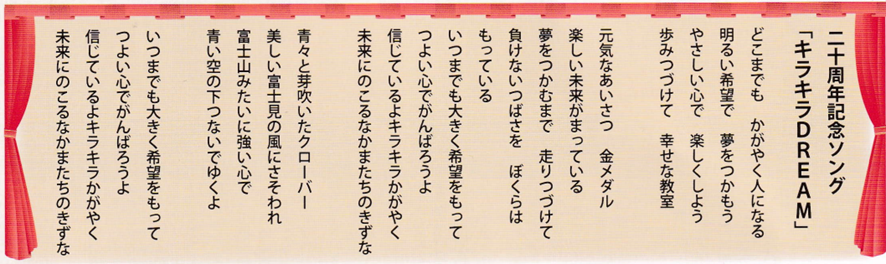 二十周年記念ソング
「キラキラDREAM」
どこまでも　かがやく人になる
明るい希望で　夢をつかもう
やさしい心で　楽しくしよう
歩みつづけて　幸せな教室
元気なあいさつ　金メダル
楽しい未来がまっている
夢をつかむまで　走りつづけて
負けないつばさを　ぼくらは
もっている
いつまでも大きく希望をもって
つよい心でがんばろうよ
信じているよキラキラかがやく
未来にのこるなかまたちのきずな
青々と芽吹いたクローバー
美しい富士見の風にさそわれ
富士山みたいに強い心で
青い空の下つないでゆくよ
いつまでも大きく希望をもって
つよい心でがんばろうよ
信じているよキラキラかがやく
未来にのこるなかまたちのきずな